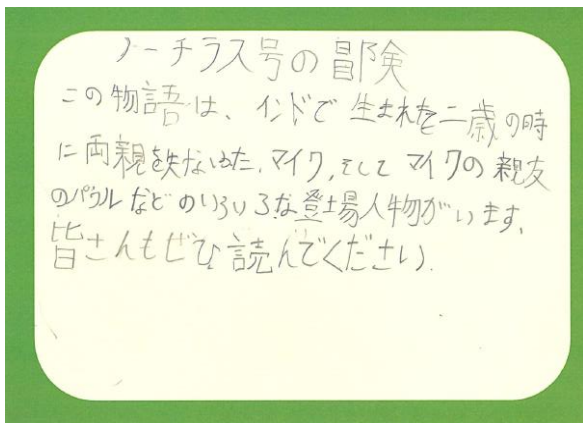 ノーチラス号の冒険
この物語は、インドで生まれた二歳の時
に両親を失なった、マイク、そしてマイクの親友
のパウルなどのいろいろな登場人物がいます、
皆さんもぜひ読んでください.